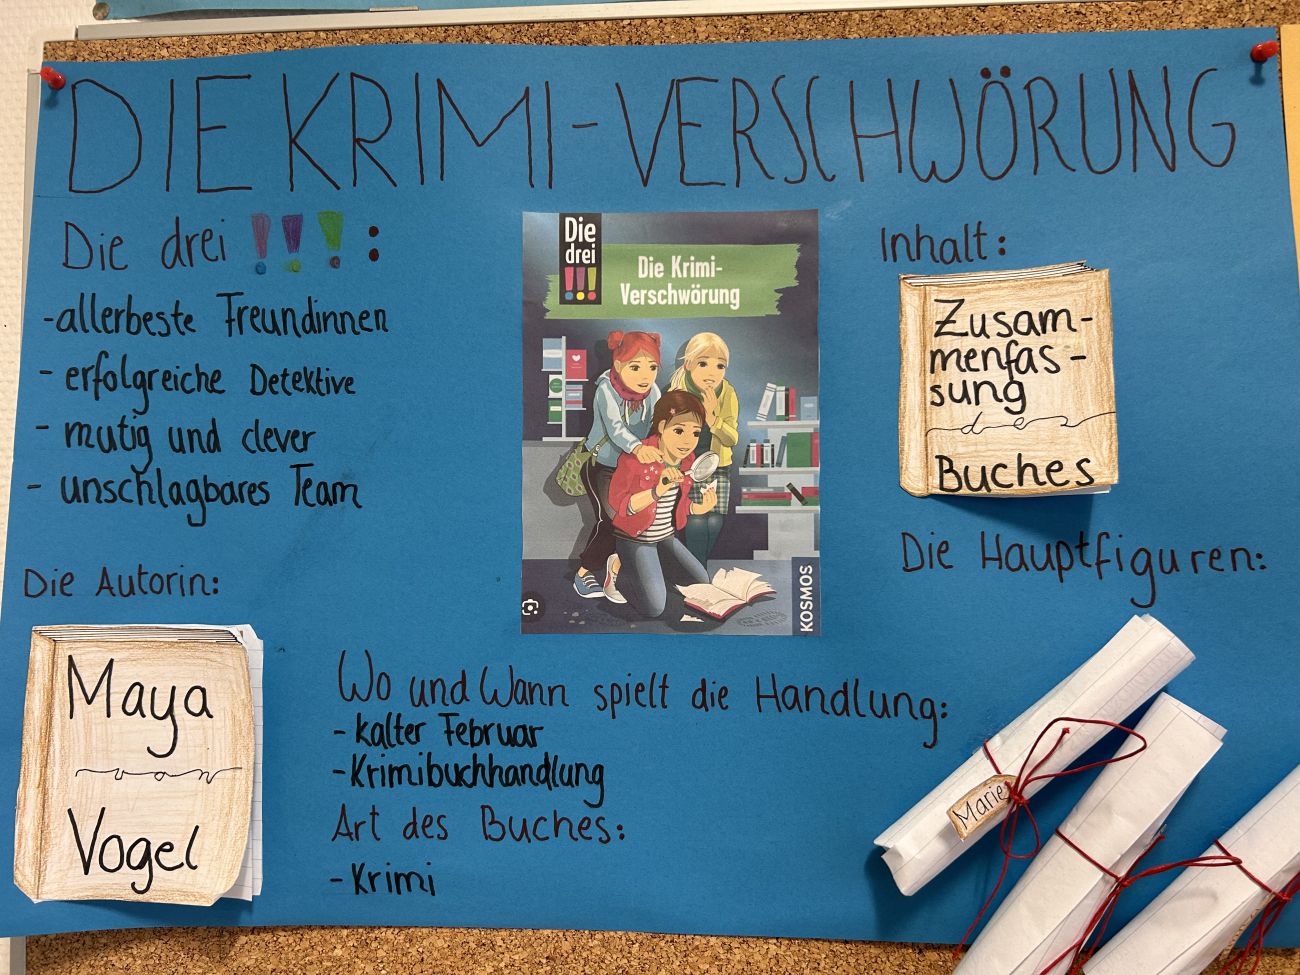 DIE KRIMI-VERSCHWÖRUNG
Die drei !!! :
-allerbeste Freundinnen
- erfolgreiche Detektive
- mutig und clever
- unschlagbares Team
Die Autorin:
Maya
von
Vogel
Die
drei
!!!
Die Krimi-
Verschwörung
KOSMOS
Wo und Wann spielt die Handlung:
-kalter Februar
-Krimibuchhandlung
Art des Buches:
-Krimi
Inhalt:
Zusam-
menfas-
sung
des
Buches
Die Hauptfiguren:
Marie